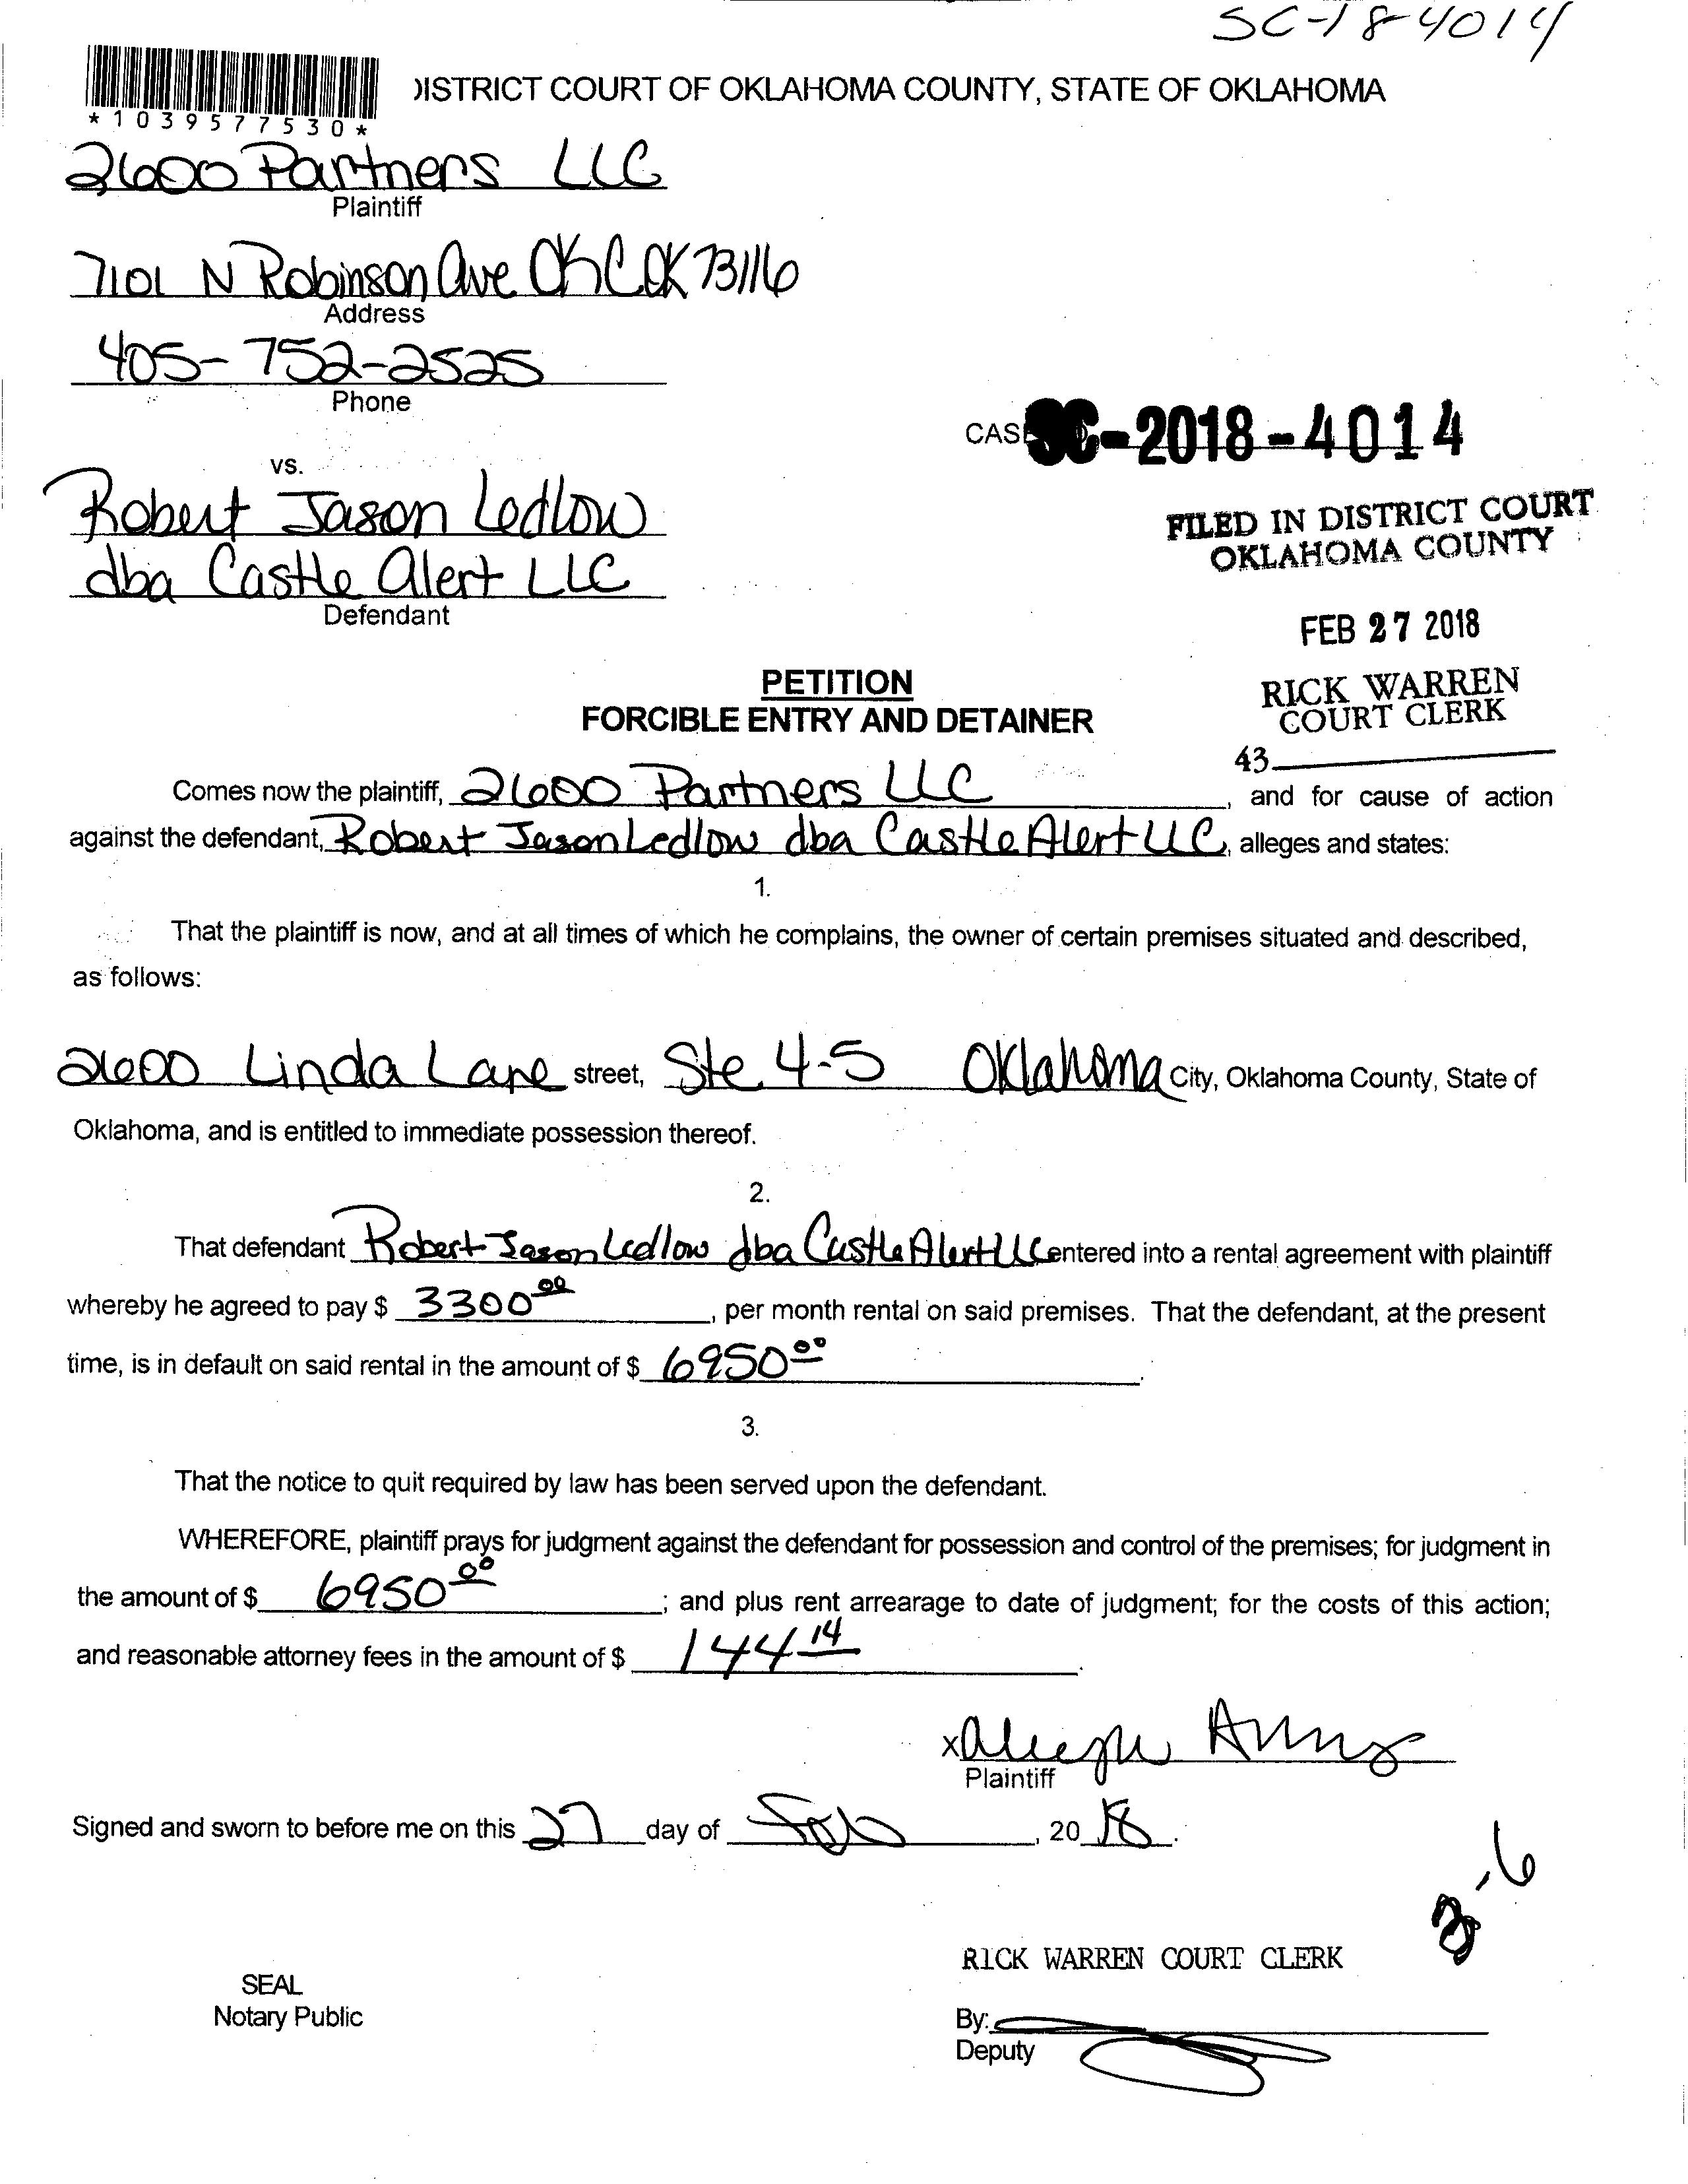 SC-18-4014
*1039577530*
DISTRICT COURT OF OKLAHOMA COUNTY, STATE OF OKLAHOMA
2600 Partners LLC
Plaintiff
7101 N Robinson Ave OKC OK 73116
Address
405-752-2525
Phone
CASE SC-2018-4014
vs.
Robert Jason Ledlow
dba Castle Alert LLC
Defendant
FILED IN DISTRICT COURT
OKLAHOMA COUNTY
FEB 27 2018
RICK WARREN
COURT CLERK
43
PETITION
FORCIBLE ENTRY AND DETAINER
Comes now the plaintiff, 2600 Partners LLC, and for cause of action
against the defendant, Robert Jason Ledlow dba Castle Alert LLC, alleges and states:
1.
That the plaintiff is now, and at all times of which he complains, the owner of certain premises situated and described,
as follows:
2600 Linda Lane street, Ste 4-5 Oklahoma City, Oklahoma County, State of
Oklahoma, and is entitled to immediate possession thereof.
2.
That defendant Robert Jason Ledlow dba Castle Alert LLC entered into a rental agreement with plaintiff
whereby he agreed to pay $ 3300 00, per month rental on said premises. That the defendant, at the present
time, is in default on said rental in the amount of $ 6950 00.
3.
That the notice to quit required by law has been served upon the defendant.
WHEREFORE, plaintiff prays for judgment against the defendant for possession and control of the premises; for judgment in
the amount of $ 6950 00; and plus rent arrearage to date of judgment; for the costs of this action;
and reasonable attorney fees in the amount of $ 144 14.
x
Plaintiff
Signed and sworn to before me on this 27 day of Feb, 20 18.
3-6
RICK WARREN COURT CLERK
SEAL
Notary Public
By:
Deputy